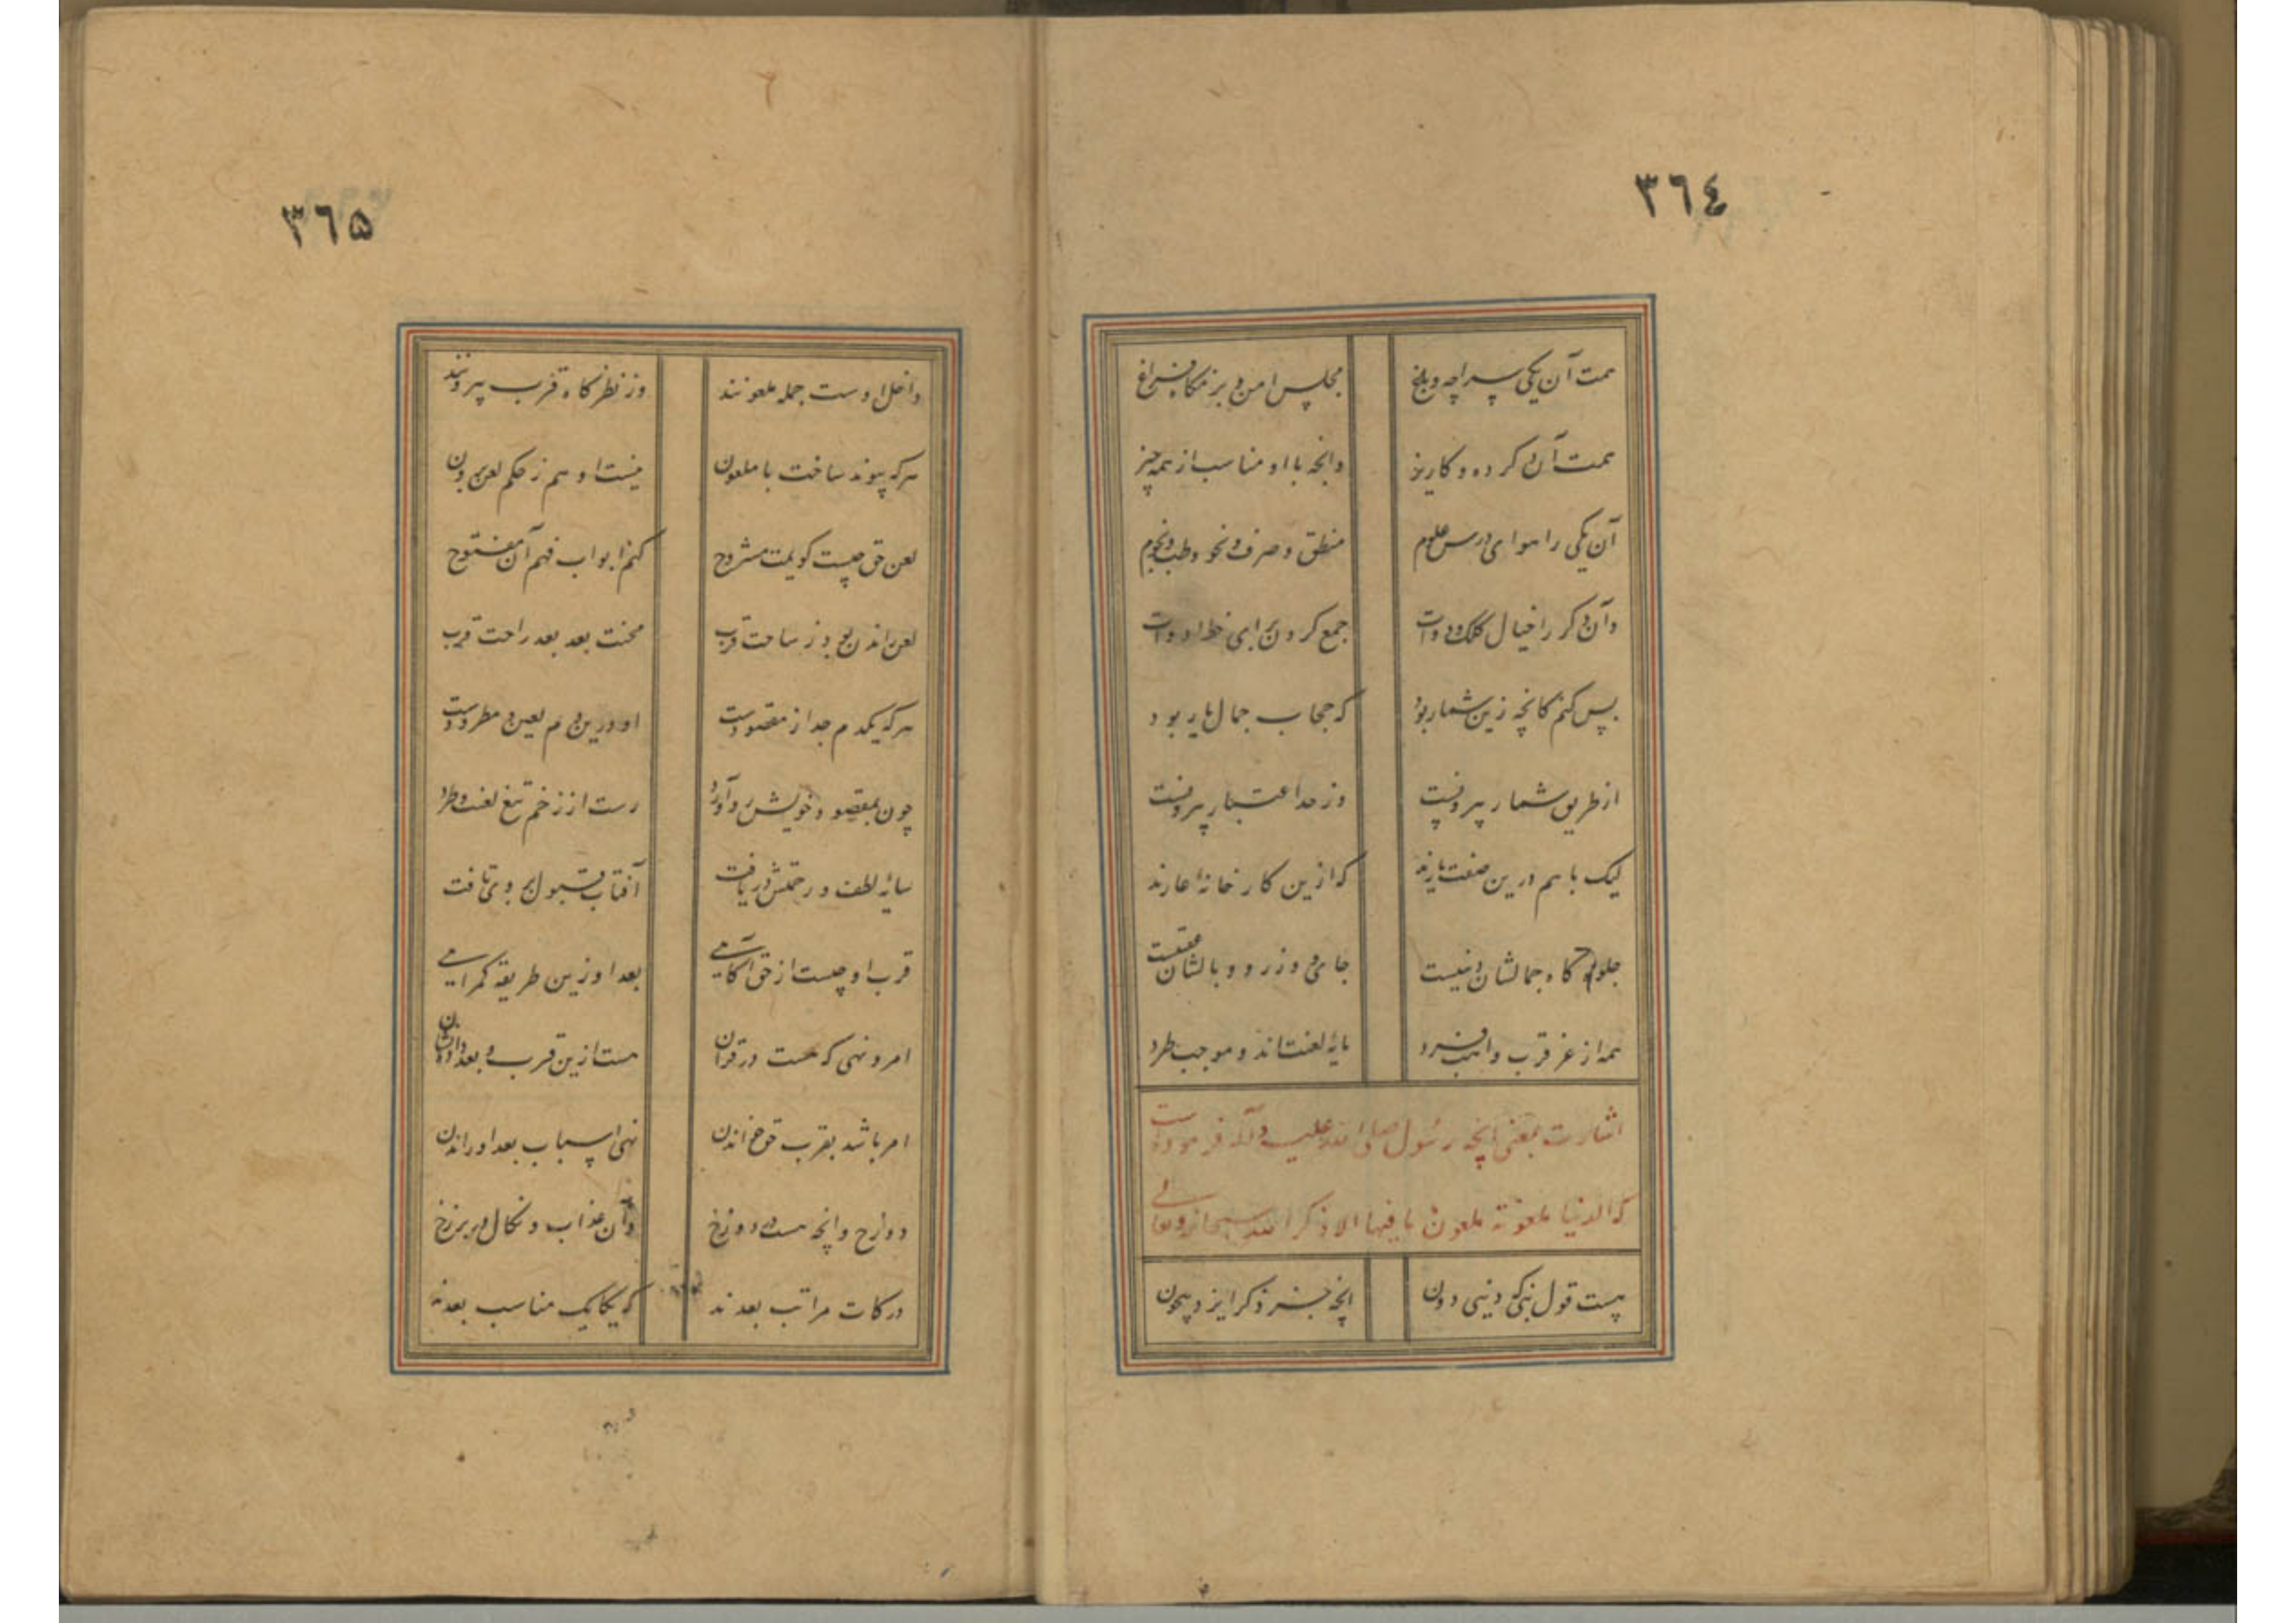 ٣٦٤
همت آن یکی سراچه و باغ مجلس امن و بزمگاه فراغ
همت آن دگر ده و کاریز وانچه با او مناسب از همه چیز
آن یکی را هوای درس علوم منطق و صرف و نحو و طب و نجوم
وآن دگر را خیال کلک و دوات جمع کردن برای خط ادوات
بس کنم کانچه زین شمار بود که حجاب جمال یار بود
از طریق شمار بیرونست وز حد اعتبار بیرونست
لیک با هم درین صفت یارند که ازین کارخانه عارند
جلوه گاه جمالشان دنییست جای وزر و وبالشان عقبیست
همه از عز قرب واهب فرد مایه لعنت‌اند و موجب طرد
اشارت بمعنی آنچه رسول صلی الله علیه وآله فرموده است
که الدنیا ملعونة ملعون ما فیها الا ذکر الله سبحانه وتعالی
هست قول نبی که دنیی دون آنچه جز ذکر ایزد بیچون
٣٦٥
داخل اوست جمله ملعونند وز نظرگاه قرب بیرونند
هرکه پیوند ساخت با ملعون نیست او هم ز حکم لعن برون
لعن حق چیست گویمت مشروح کنم ابواب فهم آن مفتوح
لعن راندن بود ز ساحت قرب محنت بعد بعد راحت قرب
هرکه یکدم جدا ز مقصودست او درین دم لعین و مطرودست
چون بمقصود خویش رو آورد رست از زخم تیغ لعنت و طرد
سایه لطف و رحمتش دریافت آفتاب قبول بر وی تافت
قرب او چیست از حق آگاهی بعد او زین طریقه گمراهی
امر و نهی که هست در قرآن هست ازین قرب و بعد داده نشان
امر باشد بقرب حق خواندن نهی از اسباب بعد او راندن
دوزخ وانچه هست در دوزخ وآن عذاب و نکال در برزخ
درکات مراتب بعدند که یکایک مناسب بعدند